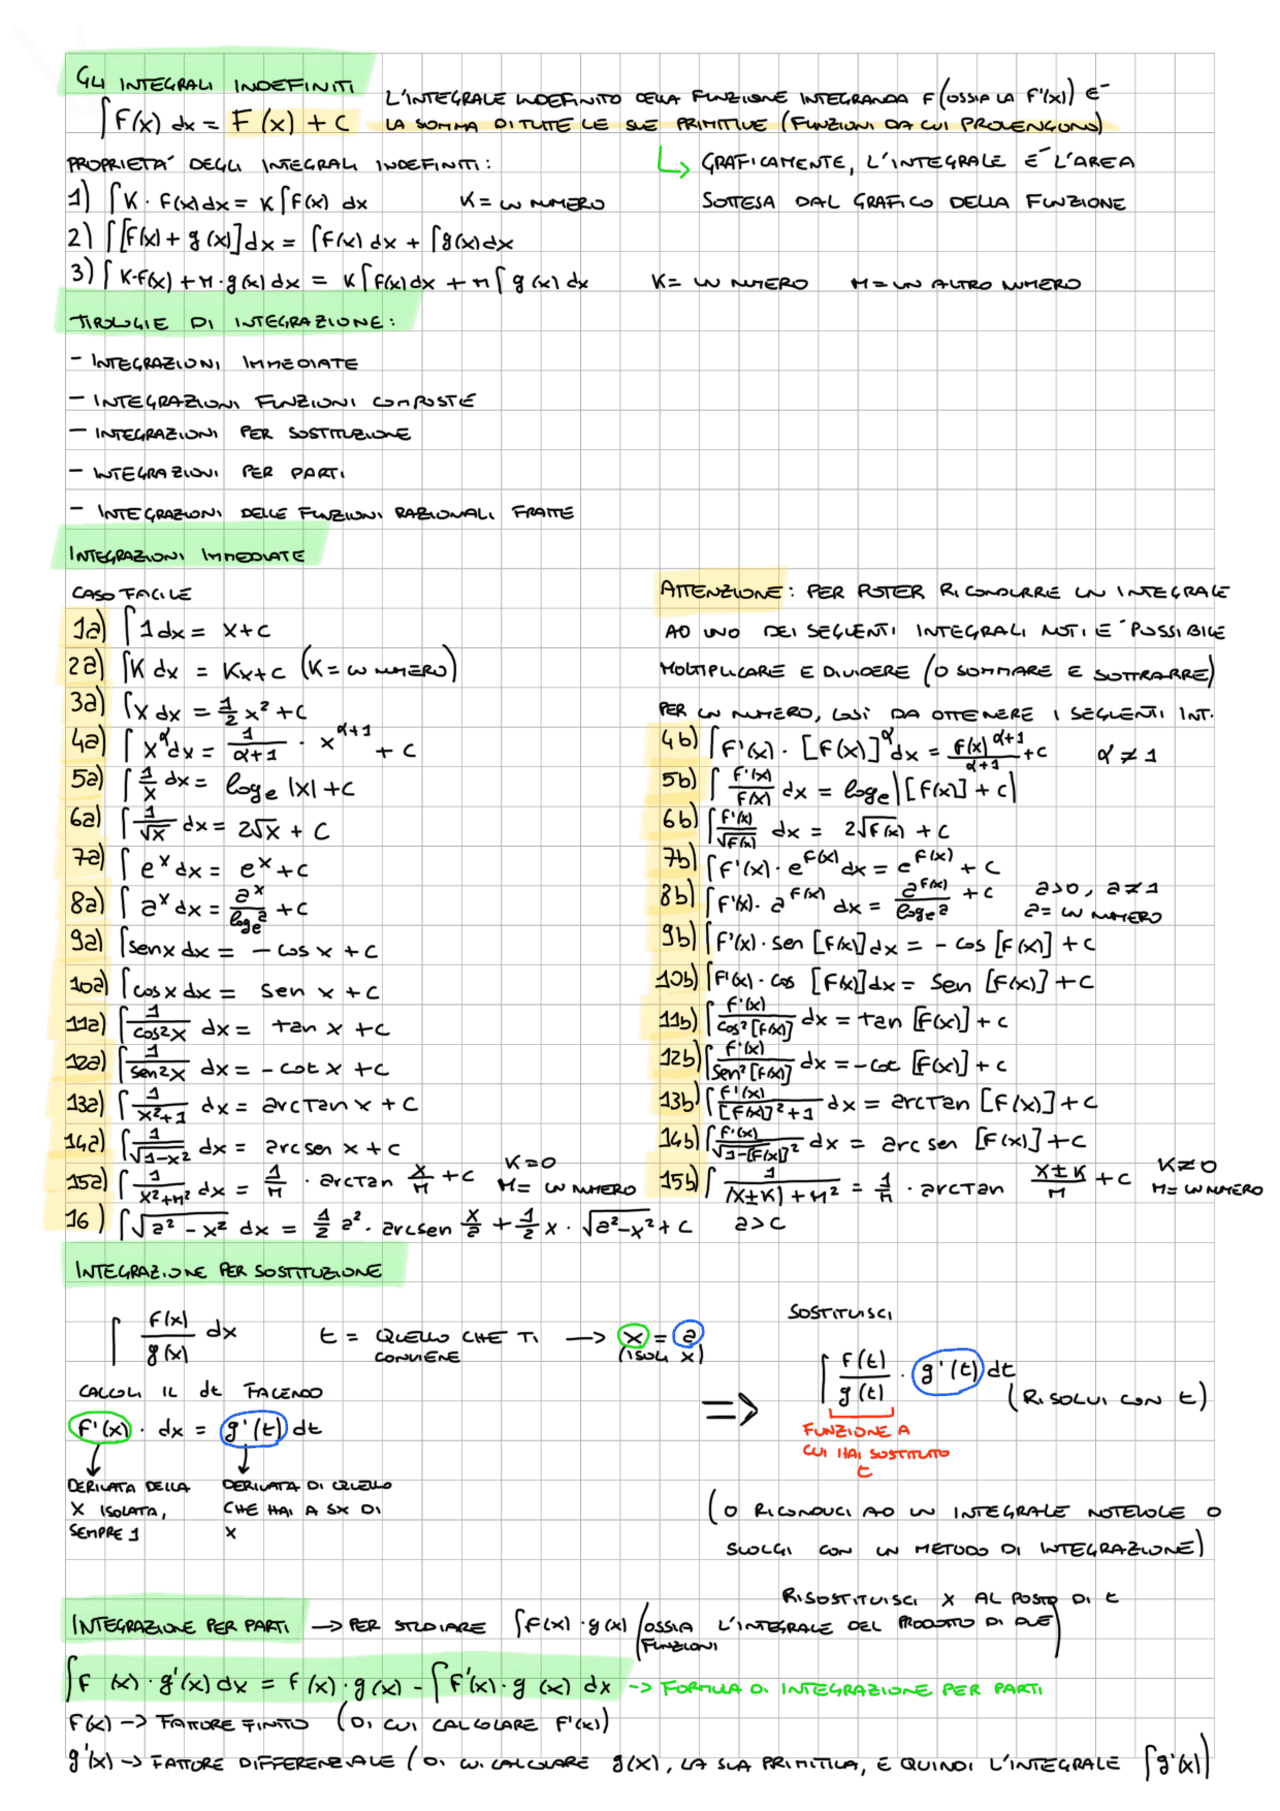 GLI INTEGRALI INDEFINITI
∫ F(x) dx = F(x) + C
L'INTEGRALE INDEFINITO DELLA FUNZIONE INTEGRANDA F (OSSIA LA F'(x)) E'
LA SOMMA DI TUTTE LE SUE PRIMITIVE (FUNZIONI DA CUI PROVENGONO)
↳ GRAFICAMENTE, L'INTEGRALE E' L'AREA
SOTTESA DAL GRAFICO DELLA FUNZIONE
PROPRIETA' DEGLI INTEGRALI INDEFINITI:
1) ∫ K · F(x) dx = K ∫ F(x) dx K = UN NUMERO
2) ∫ [F(x) + g(x)] dx = ∫ F(x) dx + ∫ g(x) dx
3) ∫ K·F(x) + M·g(x) dx = K ∫ F(x) dx + M ∫ g(x) dx K = UN NUMERO M = UN ALTRO NUMERO
TIPOLOGIE DI INTEGRAZIONE:
- INTEGRAZIONI IMMEDIATE
- INTEGRAZIONI FUNZIONI COMPOSTE
- INTEGRAZIONI PER SOSTITUZIONE
- INTEGRAZIONI PER PARTI
- INTEGRAZIONI DELLE FUNZIONI RAZIONALI FRATTE
INTEGRAZIONI IMMEDIATE
CASO FACILE
1a) ∫ 1 dx = x + c
2a) ∫ K dx = Kx + c (K = UN NUMERO)
3a) ∫ x dx = 1/2 x² + c
4a) ∫ x^α dx = 1/(α+1) · x^(α+1) + c
5a) ∫ 1/x dx = log_e |x| + c
6a) ∫ 1/√x dx = 2√x + c
7a) ∫ e^x dx = e^x + c
8a) ∫ a^x dx = a^x/log_e a + c
9a) ∫ sen x dx = - cos x + c
10a) ∫ cos x dx = sen x + c
11a) ∫ 1/cos²x dx = tan x + c
12a) ∫ 1/sen²x dx = - cot x + c
13a) ∫ 1/(x²+1) dx = arctan x + c
14a) ∫ 1/√(1-x²) dx = arcsen x + c
15a) ∫ 1/(x²+M²) dx = 1/M · arctan x/M + c K = 0 M = UN NUMERO
16) ∫ √(a² - x²) dx = 1/2 a² · arcsen x/a + 1/2 x · √(a²-x²) + c a > c
ATTENZIONE: PER POTER RICONDURRE UN INTEGRALE
AD UNO DEI SEGUENTI INTEGRALI NOTI E' POSSIBILE
MOLTIPLICARE E DIVIDERE (O SOMMARE E SOTTRARRE)
PER UN NUMERO, COSÌ DA OTTENERE I SEGUENTI INT.
4b) ∫ F'(x) · [F(x)]^α dx = F(x)^(α+1)/(α+1) + c α ≠ 1
5b) ∫ F'(x)/F(x) dx = log_e |[F(x)] + c|
6b) ∫ F'(x)/√F(x) dx = 2√F(x) + c
7b) ∫ F'(x) · e^F(x) dx = e^F(x) + c
8b) ∫ F'(x) · a^F(x) dx = a^F(x)/log_e a + c a>0, a≠1 a = UN NUMERO
9b) ∫ F'(x) · sen [F(x)] dx = - cos [F(x)] + c
10b) ∫ F'(x) · cos [F(x)] dx = sen [F(x)] + c
11b) ∫ F'(x)/cos²[F(x)] dx = tan [F(x)] + c
12b) ∫ F'(x)/sen²[F(x)] dx = - cot [F(x)] + c
13b) ∫ F'(x)/([F(x)]²+1) dx = arctan [F(x)] + c
14b) ∫ F'(x)/√(1-[F(x)]²) dx = arcsen [F(x)] + c
15b) ∫ 1/((x±K)+M²) = 1/M · arctan (x±K)/M + c K≠0 M = UN NUMERO
INTEGRAZIONE PER SOSTITUZIONE
∫ f(x)/g(x) dx t = QUELLO CHE TI CONVIENE → x = a (ISOLI x)
CALCOLI IL dt FACENDO
F'(x) · dx = g'(t) dt
DERIVATA DELLA
X ISOLATA,
SEMPRE 1
DERIVATA DI QUELLO
CHE HAI A SX DI
X
=>
SOSTITUISCI
∫ f(t)/g(t) · g'(t) dt (RISOLVI CON t)
FUNZIONE A
CUI HAI SOSTITUITO
t
(O RICONDUCI AD UN INTEGRALE NOTEVOLE O
SVOLGI CON UN METODO DI INTEGRAZIONE)
RISOSTITUISCI X AL POSTO DI t
INTEGRAZIONE PER PARTI → PER STUDIARE ∫ F(x) · g(x) (OSSIA L'INTEGRALE DEL PRODOTTO DI DUE
FUNZIONI)
∫ F (x) · g'(x) dx = f(x) · g(x) - ∫ F'(x) · g(x) dx → FORMULA DI INTEGRAZIONE PER PARTI
F(x) → FATTORE FINITO (DI CUI CALCOLARE F'(x))
g'(x) → FATTORE DIFFERENZIALE (DI CUI CALCOLARE g(x), LA SUA PRIMITIVA, E QUINDI L'INTEGRALE ∫ g'(x))